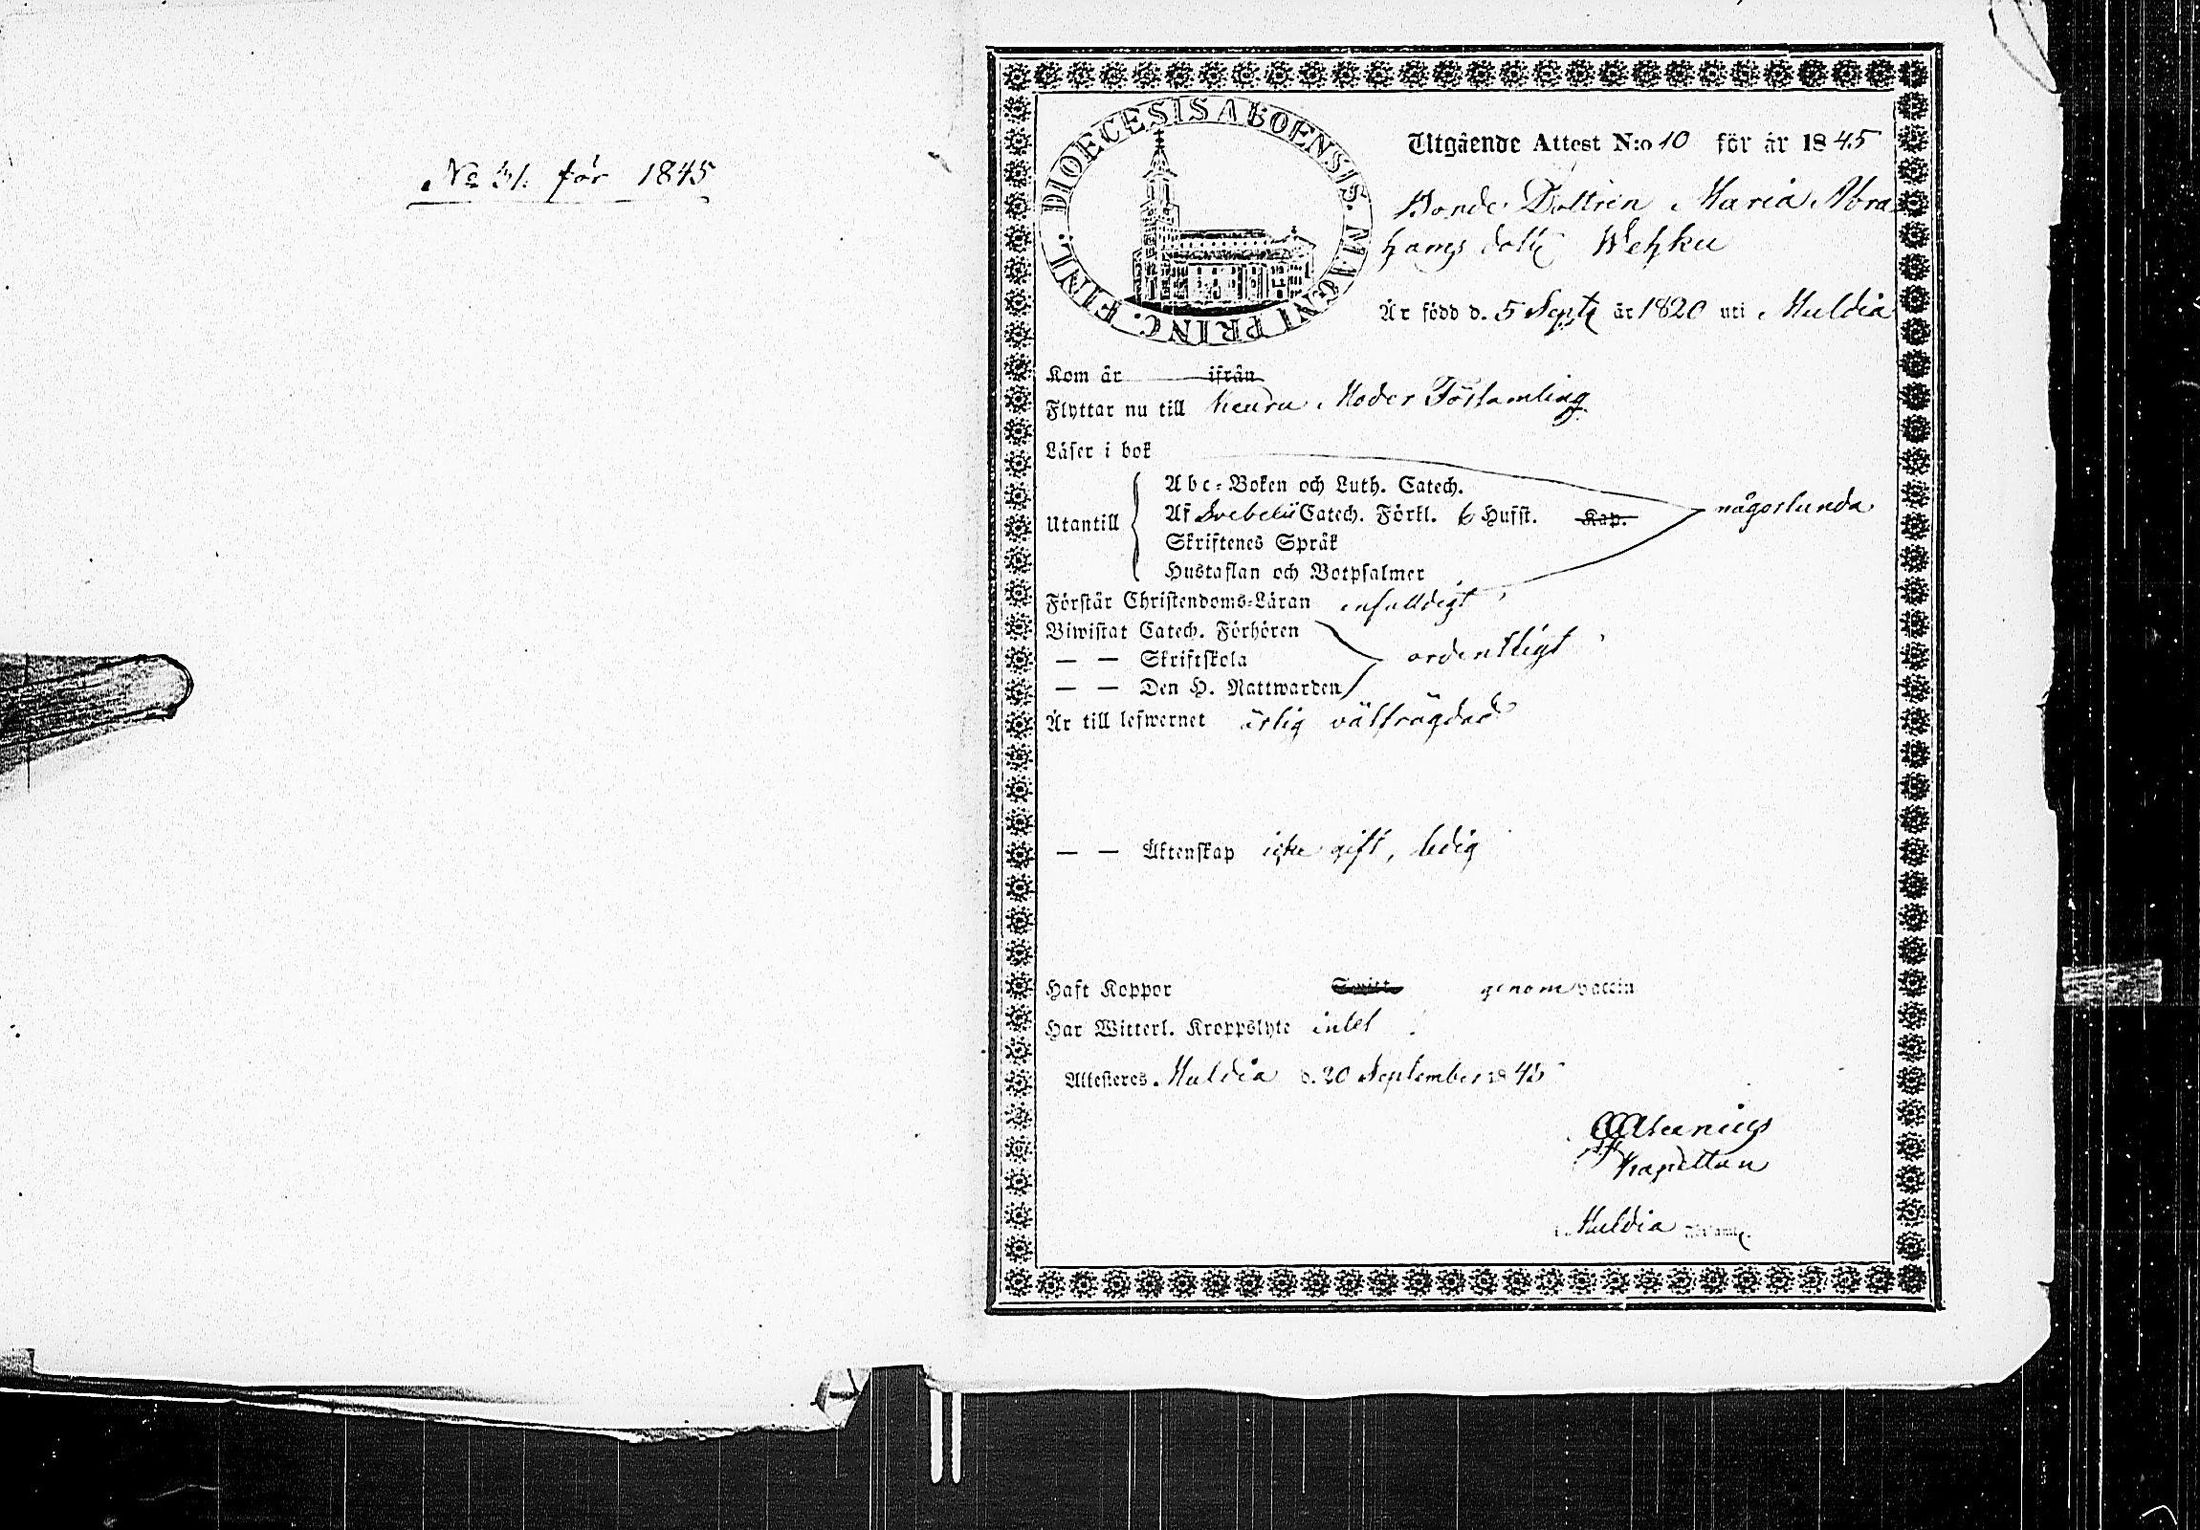 No 51. för 1845
DIOECESIS ABOENSIS. MAGNI PRINC. FINL.
Utgående Attest N:o 10 för år 1845
Bonde Dottren Maria Abra
hams dott Wehku
Är född d. 5 Sept är 1820 uti Muldia
Kom år ifrån
Flyttar nu till Keuru Moder Församling
Läser i bok
Abc-Boken och Luth. Catech.
Utantill Af Svebelii Catech. Förkl. 6 Hufst. Kap. någorlunda
Skriftenes Språk
Hustaflan och Botpsalmer
Förstår Christendoms-Läran enfaldigt
Biwistat Catech. Förhören
— — Skriftskola ordentligt
— — Den H. Nattwarden
Är till lefwernet ärlig välfrägdad
— — Äktenskap icke gift, ledig
Haft Koppor genom vaccin
Har Witterl. Kroppslyte intet
Attesteres Muldia d. 20 September 1845
Kapellan
i Muldia Församl.